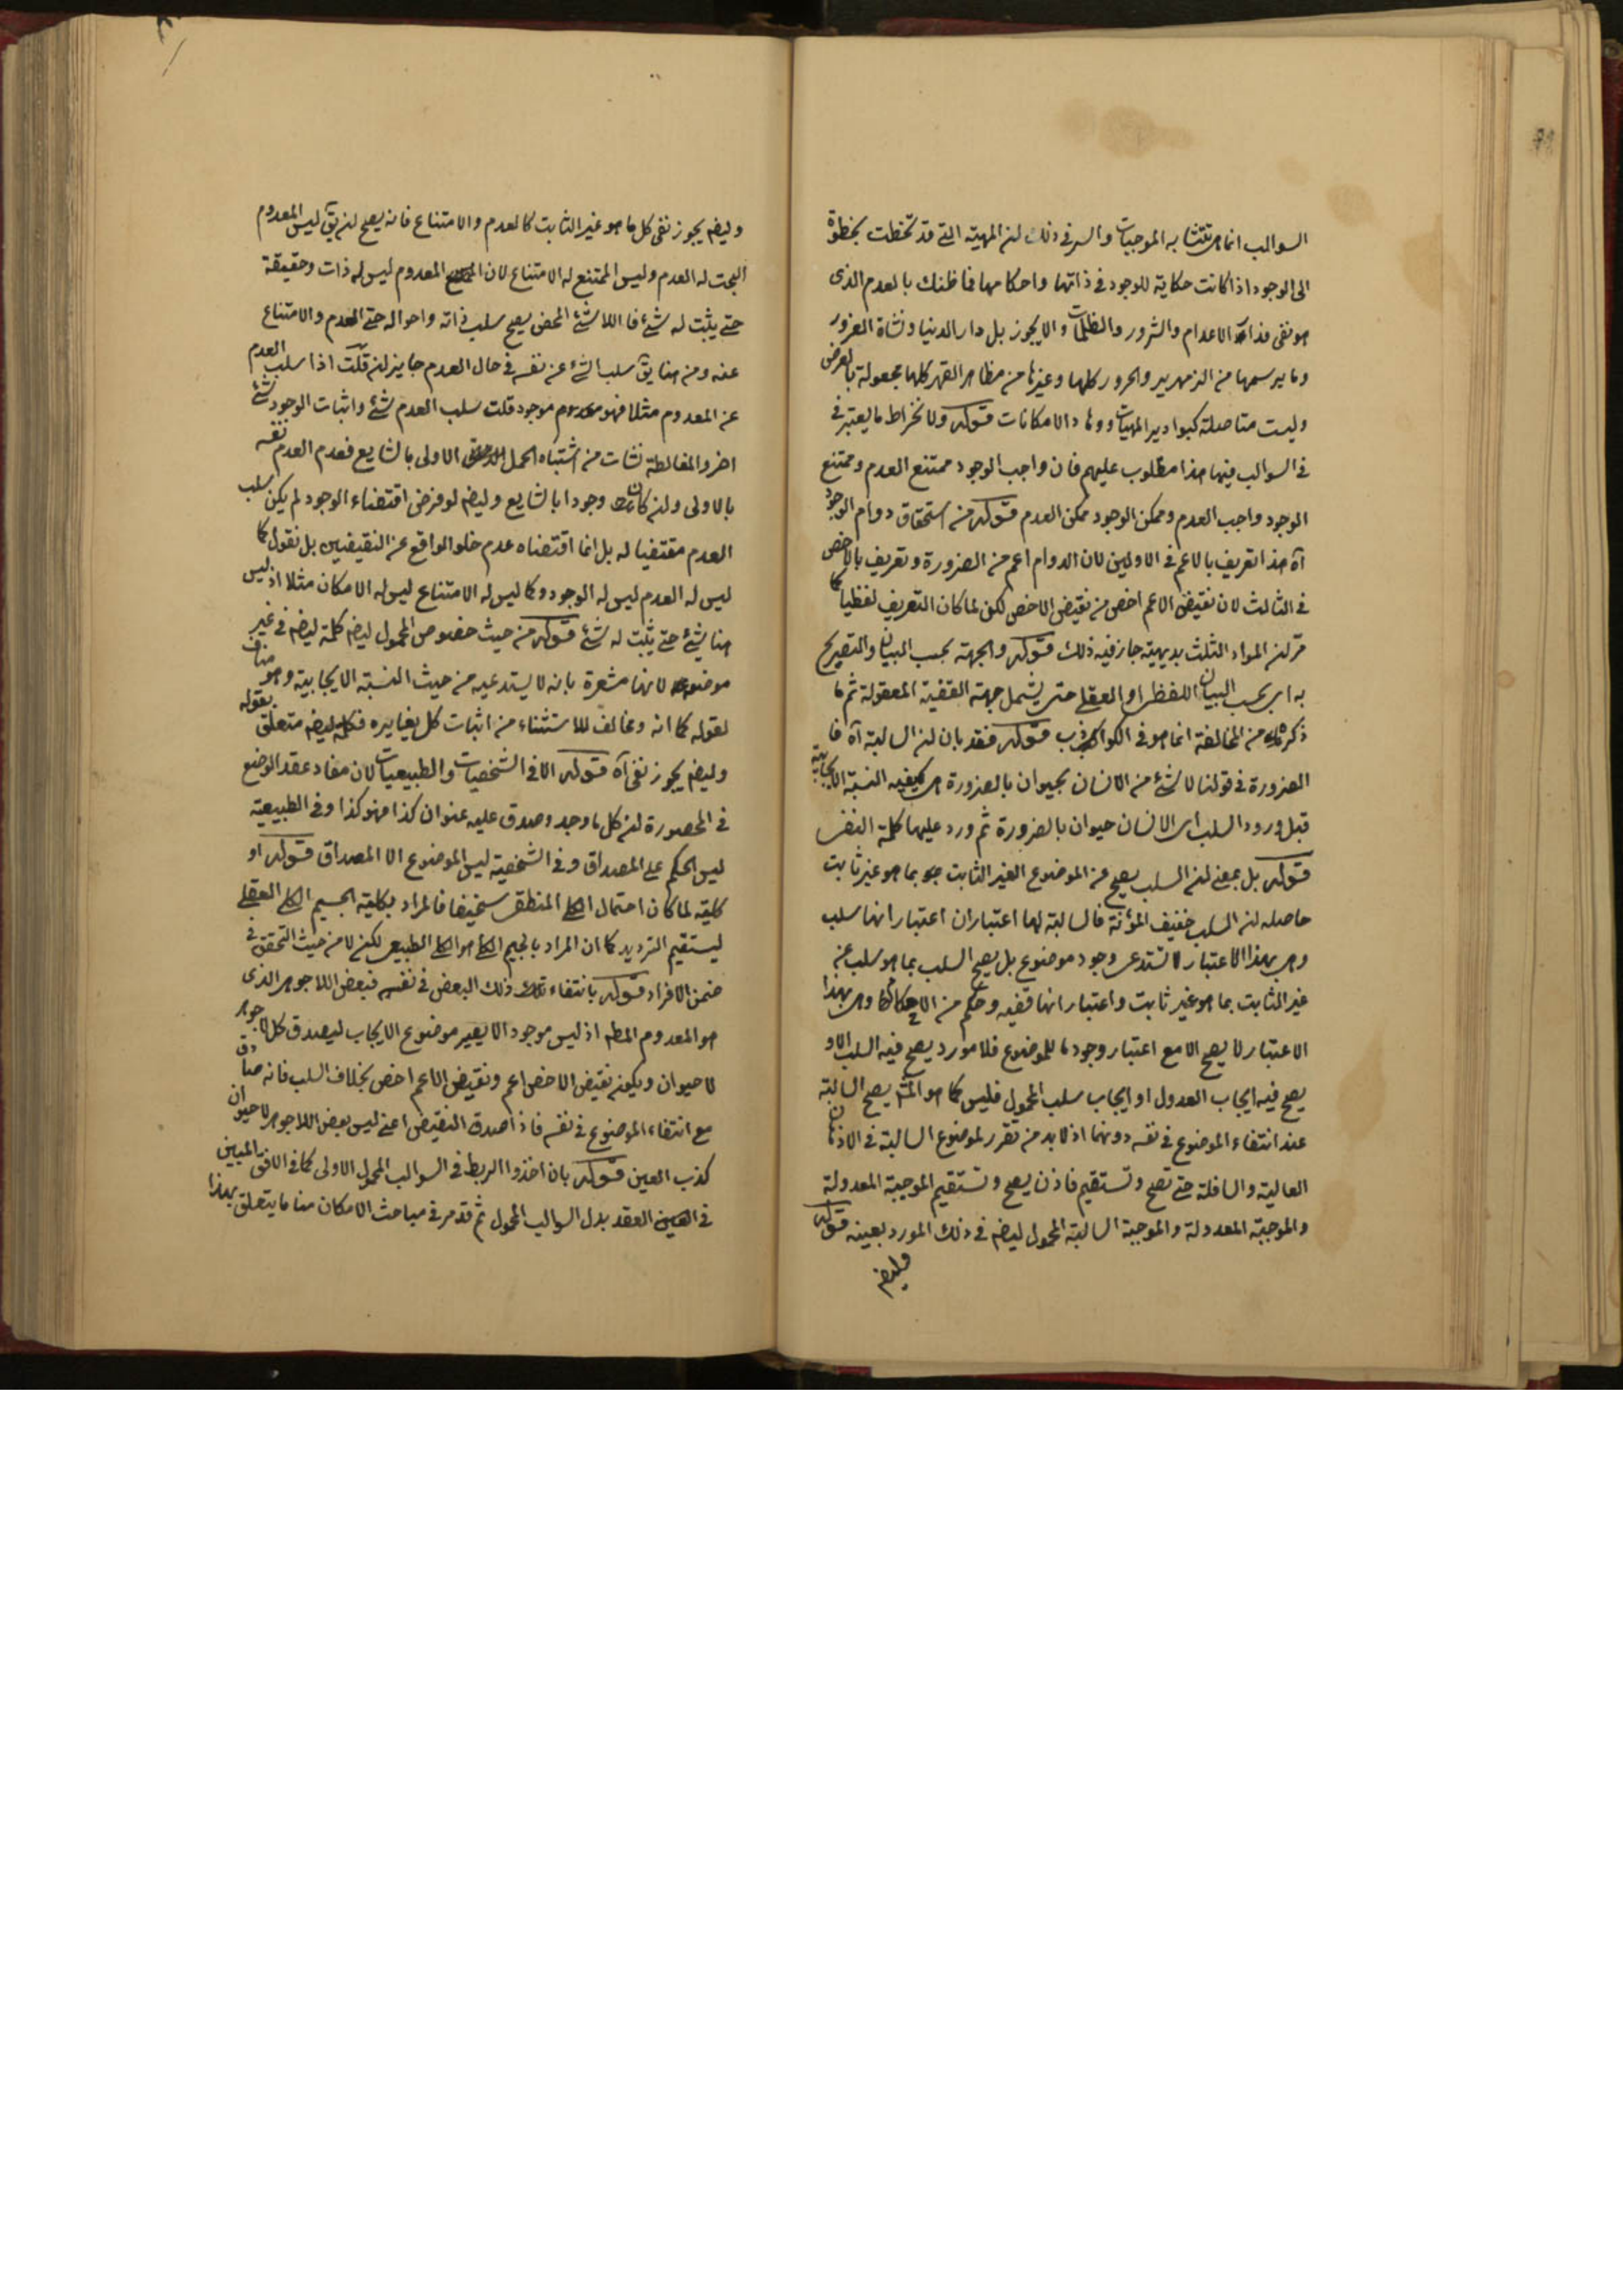 السوالب انما هى تتشابه الموجبات والسر فى ذلك لان المهية التى قد تخطت بخطوة
الى الوجود اذا كانت حكاية للوجود فى ذاتها واحكامها فما ظنك بالعدم الذى
هو نفى فذات الاعدام والشرور والظلمات والا يجوز بل دار الدنيا ونشاة الغرور
وما يرسمها من الزمهرير والحرور كلها وغيرها من مظاهر القهر كلها مجعولة بالعرض
وليست متاصلة كبوادير المهيات ووهاد الامكانات قوله ولانخراط ما يعتبر فى
فى السوالب فيها هذا مطلوب عليهم فان واجب الوجود ممتنع العدم وممتنع
الوجود واجب العدم وممكن الوجود ممكن العدم قوله من استحقاق دوام الوجود
آه هذا تعريف بالاعم فى الاولين لان الدوام اعم من الضرورة وتعريف بالاخص
فى الثالث لان نقيض الاعم اخص من نقيض الاخص لكن لما كان التعريف لفظيا كما
مر لان المواد الثلث بديهية جاز فيه ذلك قوله والجهة بحسب البيان والتصريح
به اى بحسب البيان اللفظى او العقلى حتى يشمل جهة القضية المعقولة ثم ما
ذكره من المخالفة انما هو فى الكواذب قوله فقد بان لان السالبة آه فا
الضرورة فى قولنا لا شئ من الانسان بحيوان بالضرورة هى كيفية النسبة الايجابية
قبل ورود السلب اى الانسان حيوان بالضرورة ثم ورد عليها كلمة النفى
قوله بل بمعنى لان السلب يصح عن الموضوع الغير الثابت بما هو غير ثابت
حاصله لان السلب خفيف المؤنة فالسالبة لها اعتباران اعتبار انها سلب
وهى بهذا الاعتبار لا تستدعى وجود موضوع بل يصح السلب بما هو سلب عن
غير الثابت بما هو غير ثابت واعتبار انها قضية وحكم من الاحكام وهى بهذا
الاعتبار لا يصح الا مع اعتبار وجود ما للموضوع فلا مورد يصح فيه السلب الا و
يصح فيه ايجاب العدول او ايجاب سلب المحمول فليس كما هو المش يصح السالبة
عند انتفاء الموضوع فى نفسه دونهما اذ لابد من تقرر لموضوع السالبة فى الاذهان
العالية والسافلة حتى تصح وتستقيم فاذن يصح وتستقيم الموجبة المعدولة
والموجبة المعدولة والموجبة السالبة المحمول ليضم فى ذلك المورد بعينه قوله
وليضم
وليضم يجوز نفى كل ما هو غير الثابت كالعدم والامتناع فانه يصح لان يق ليس المعدوم
البحت له العدم وليس الممتنع له الامتناع لان المعدوم ليس له ذات وحقيقة
حتى يثبت له شئ فاللاشئ المحض يصح سلب ذاته واحواله حتى العدم والامتناع
عنه ومن هنا يق سلب الشئ عن نفسه فى حال العدم جايز لان قلت اذا سلب العدم
عن المعدوم مثلا فهو موجود قلت سلب العدم شئ واثبات الوجود شئ
اخر والمغالطة نشات من اشتباه الحمل الاولى بالشايع فعدم العدم نفسه
بالاولى ولان كان وجودا بالشايع وليضم لو فرض اقتضاء الوجود لم يكن سلب
العدم مقتضيا له بل انما اقتضاه عدم خلو الواقع عن النقيضين بل نقول كما
ليس له العدم ليس له الوجود وكما ليس له الامتناع ليس له الامكان مثلا اذ ليس
هنا شئ حتى يثبت له شئ قوله من حيث خصوص المحمول ليضم كلمة ليضم فى غير
موضوعه لانها مشعرة بانه لا يستدعيه من حيث النسبة الايجابية وهو مناف
لقوله كما انه ومخالف للاستثناء من اثبات كل يغايره فكلمة ليضم متعلق بقوله
وليضم يجوز نفى آه قوله الا فى الشخصيات والطبيعيات لان مفاد عقد الوضع
فى المحصورة لان كل ما وجد وصدق عليه عنوان كذا فهو كذا وفى الطبيعية
ليس الحكم على المصداق وفى الشخصية ليس الموضوع الا المصداق قوله او
كلية لما كان احتمال الكلى المنطقى سخيفا فالمراد بكلية الجسيم الكلى العقلى
ليستقيم الترديد كما ان المراد بالجيم الكلى هو الكلى الطبيعى لكن لا من حيث التحقق فى
ضمن الافراد قوله بانتفاء ذلك البعض فى نفسه فبعض اللاجوهر الذى
هو المعدوم المطلق اذ ليس موجودا لا يصير موضوع الايجاب ليصدق كل لا جوهر
لا حيوان ويكون نقيض الاخص اعم ونقيض الاعم اخص بخلاف السلب فانه صادق
مع انتفاء الموضوع فى نفسه فاذا صدق النقيض اعنى ليس بعض اللاجوهر لا حيوان
كذب العين قوله بان اخذوا الربط فى السوالب المحمول الاولى كما فى الافق المبين
فى العقد بدل السوالب المحمول ثم قد مر فى مباحث الامكان منا ما يتعلق بهذا